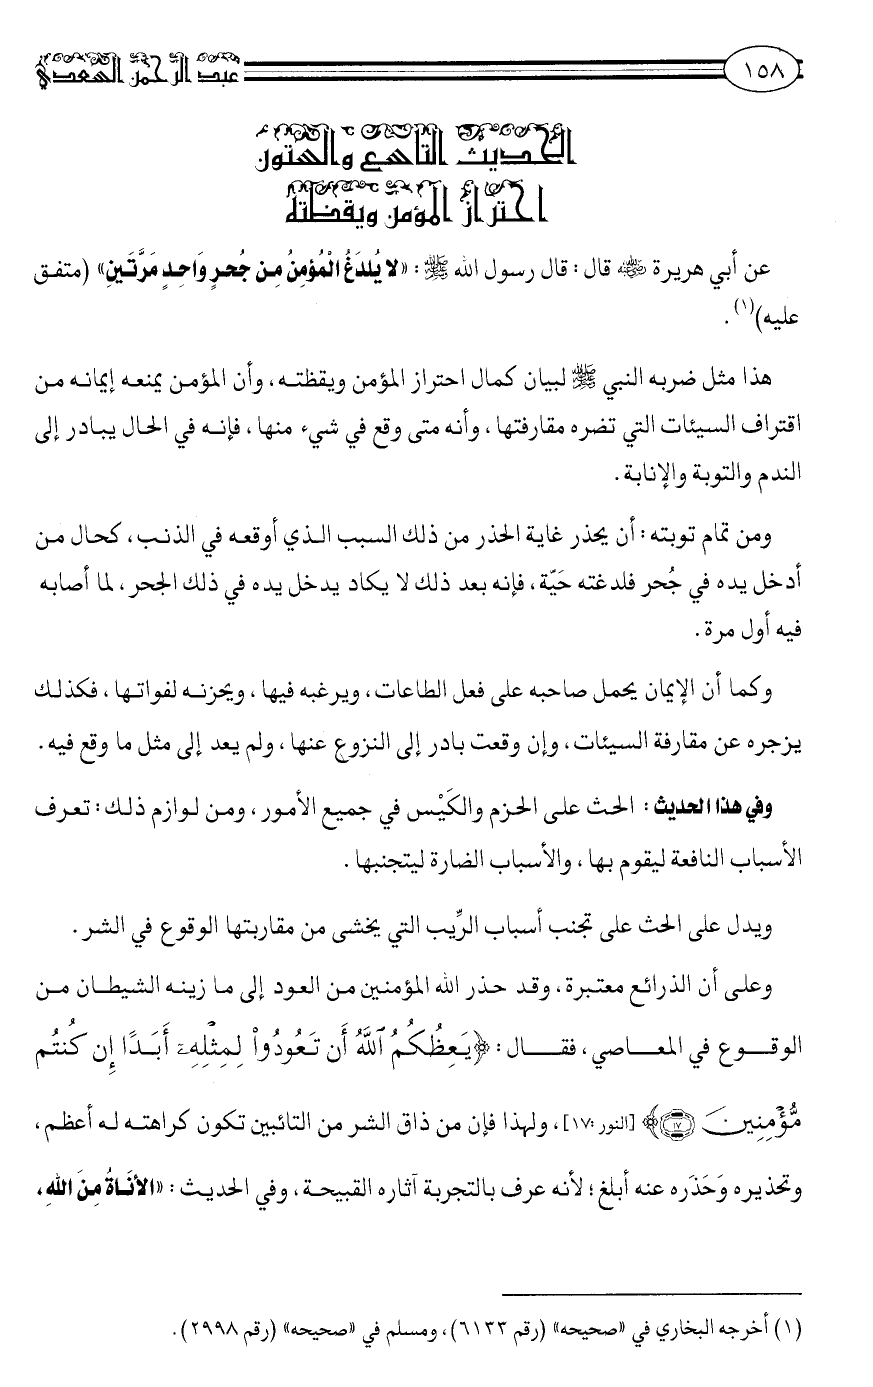 ١٥٨ عبد الرحمن السعدي
الحديث التاسع والستون
احتراز المؤمن ويقظته
عن أبي هريرة رضي الله عنه قال: قال رسول الله ﷺ: «لا يُلدَغُ الْمُؤمِنُ مِن جُحرٍ وَاحِدٍ مَرَّتَينِ» (متفق
عليه)(١).
هذا مثل ضربه النبي ﷺ لبيان كمال احتراز المؤمن ويقظته، وأن المؤمن يمنعه إيمانه من
اقتراف السيئات التي تضره مقارفتها، وأنه متى وقع في شيء منها، فإنه في الحال يبادر إلى
الندم والتوبة والإنابة.
ومن تمام توبته: أن يحذر غاية الحذر من ذلك السبب الذي أوقعه في الذنب، كحال من
أدخل يده في جُحر فلدغته حَيّة، فإنه بعد ذلك لا يكاد يدخل يده في ذلك الجحر، لما أصابه
فيه أول مرة.
وكما أن الإيمان يحمل صاحبه على فعل الطاعات، ويرغبه فيها، ويحزنه لفواتها، فكذلك
يزجره عن مقارفة السيئات، وإن وقعت بادر إلى النزوع عنها، ولم يعد إلى مثل ما وقع فيه.
وفي هذا الحديث: الحث على الحزم والكَيْس في جميع الأمور، ومن لوازم ذلك: تعرف
الأسباب النافعة ليقوم بها، والأسباب الضارة ليتجنبها.
ويدل على الحث على تجنب أسباب الرِّيب التي يخشى من مقاربتها الوقوع في الشر.
وعلى أن الذرائع معتبرة، وقد حذر الله المؤمنين من العود إلى ما زينه الشيطان من
الوقوع في المعاصي، فقال: ﴿يَعِظُكُمُ ٱللَّهُ أَن تَعُودُواْ لِمِثْلِهِۦٓ أَبَدًا إِن كُنتُم
مُّؤْمِنِينَ ١٧﴾ [النور: ١٧]، ولهذا فإن من ذاق الشر من التائبين تكون كراهته له أعظم،
وتحذيره وَحَذَره عنه أبلغ؛ لأنه عرف بالتجربة آثاره القبيحة، وفي الحديث: «الأنَاةُ مِنَ اللهِ،
(١) أخرجه البخاري في «صحيحه» (رقم ٦١٣٣)، ومسلم في «صحيحه» (رقم ٢٩٩٨).